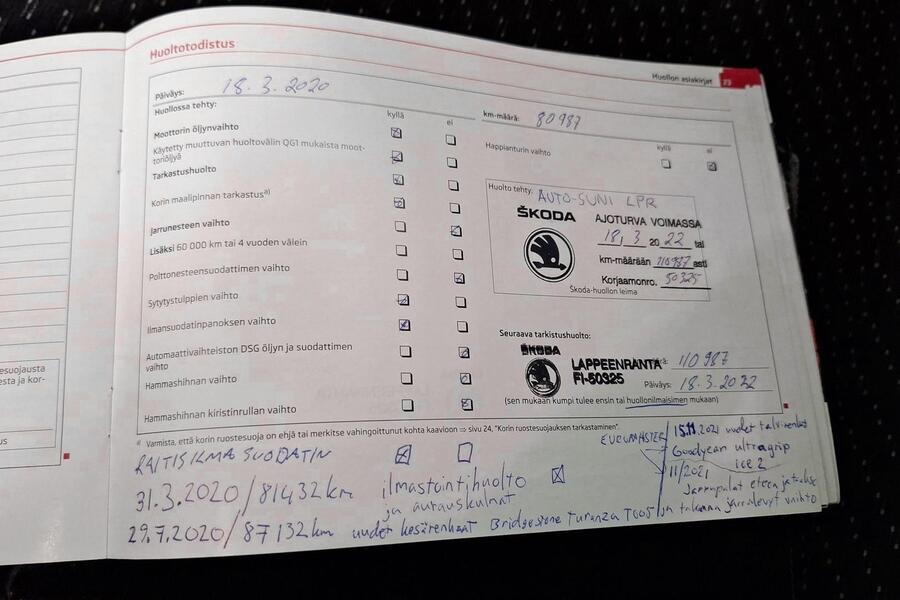 Huoltotodistus
Huollon asiakirjat 23
Päiväys: 18.3.2020
Huollossa tehty:
kyllä ei
km-määrä: 80987
Moottorin öljynvaihto
Käytetty muuttuvan huoltovälin QG1 mukaista moot-
toriöljyä
Tarkastushuolto
Korin maalipinnan tarkastus a)
Jarrunesteen vaihto
Lisäksi 60 000 km tai 4 vuoden välein
Polttonesteensuodattimen vaihto
Sytytystulppien vaihto
Ilmansuodatinpanoksen vaihto
Automaattivaihteiston DSG öljyn ja suodattimen
vaihto
Hammashihnan vaihto
Hammashihnan kiristinrullan vaihto
kyllä ei
Happianturin vaihto
Huolto tehty: AUTO-SUNI LPR
ŠKODA AJOTURVA VOIMASSA
18.3 2022 tai
km-määrään 110987 asti
Korjaamonro. 50325
Škoda-huollon leima
Seuraava tarkistushuolto:
ŠKODA
LAPPEENRANTA 110987
FI-50325
Päiväys: 18.3.2022
(sen mukaan kumpi tulee ensin tai huollonilmaisimen mukaan)
a) Varmista, että korin ruostesuoja on ehjä tai merkitse vahingoittunut kohta kaavioon ⇒ sivu 24, "Korin ruostesuojauksen tarkastaminen".
RAITISILMASUODATIN
31.3.2020/81432km ilmastointihuolto
ja
29.7.2020/87132km uudet kesärenkaat Bridgestone Turanza T005
EUROMASTER
15.11.2021 uudet talvirenkaat
Goodyear ultragrip
ice 2
11/2021
Jarrupalat eteen ja taakse
ja takana jarrulevyt vaihto
esuojausta
esta ja kor-
us